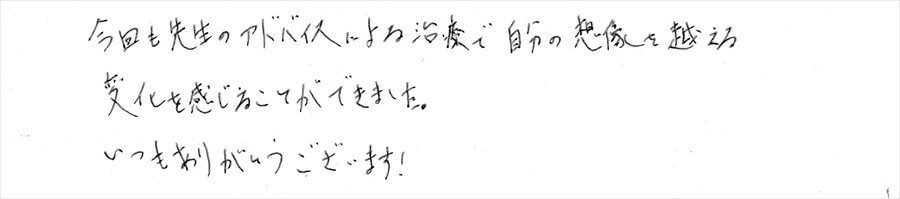 今回も先生のアドバイスによる治療で自分の想像を越える
変化を感じることができました。
いつもありがとうございます!